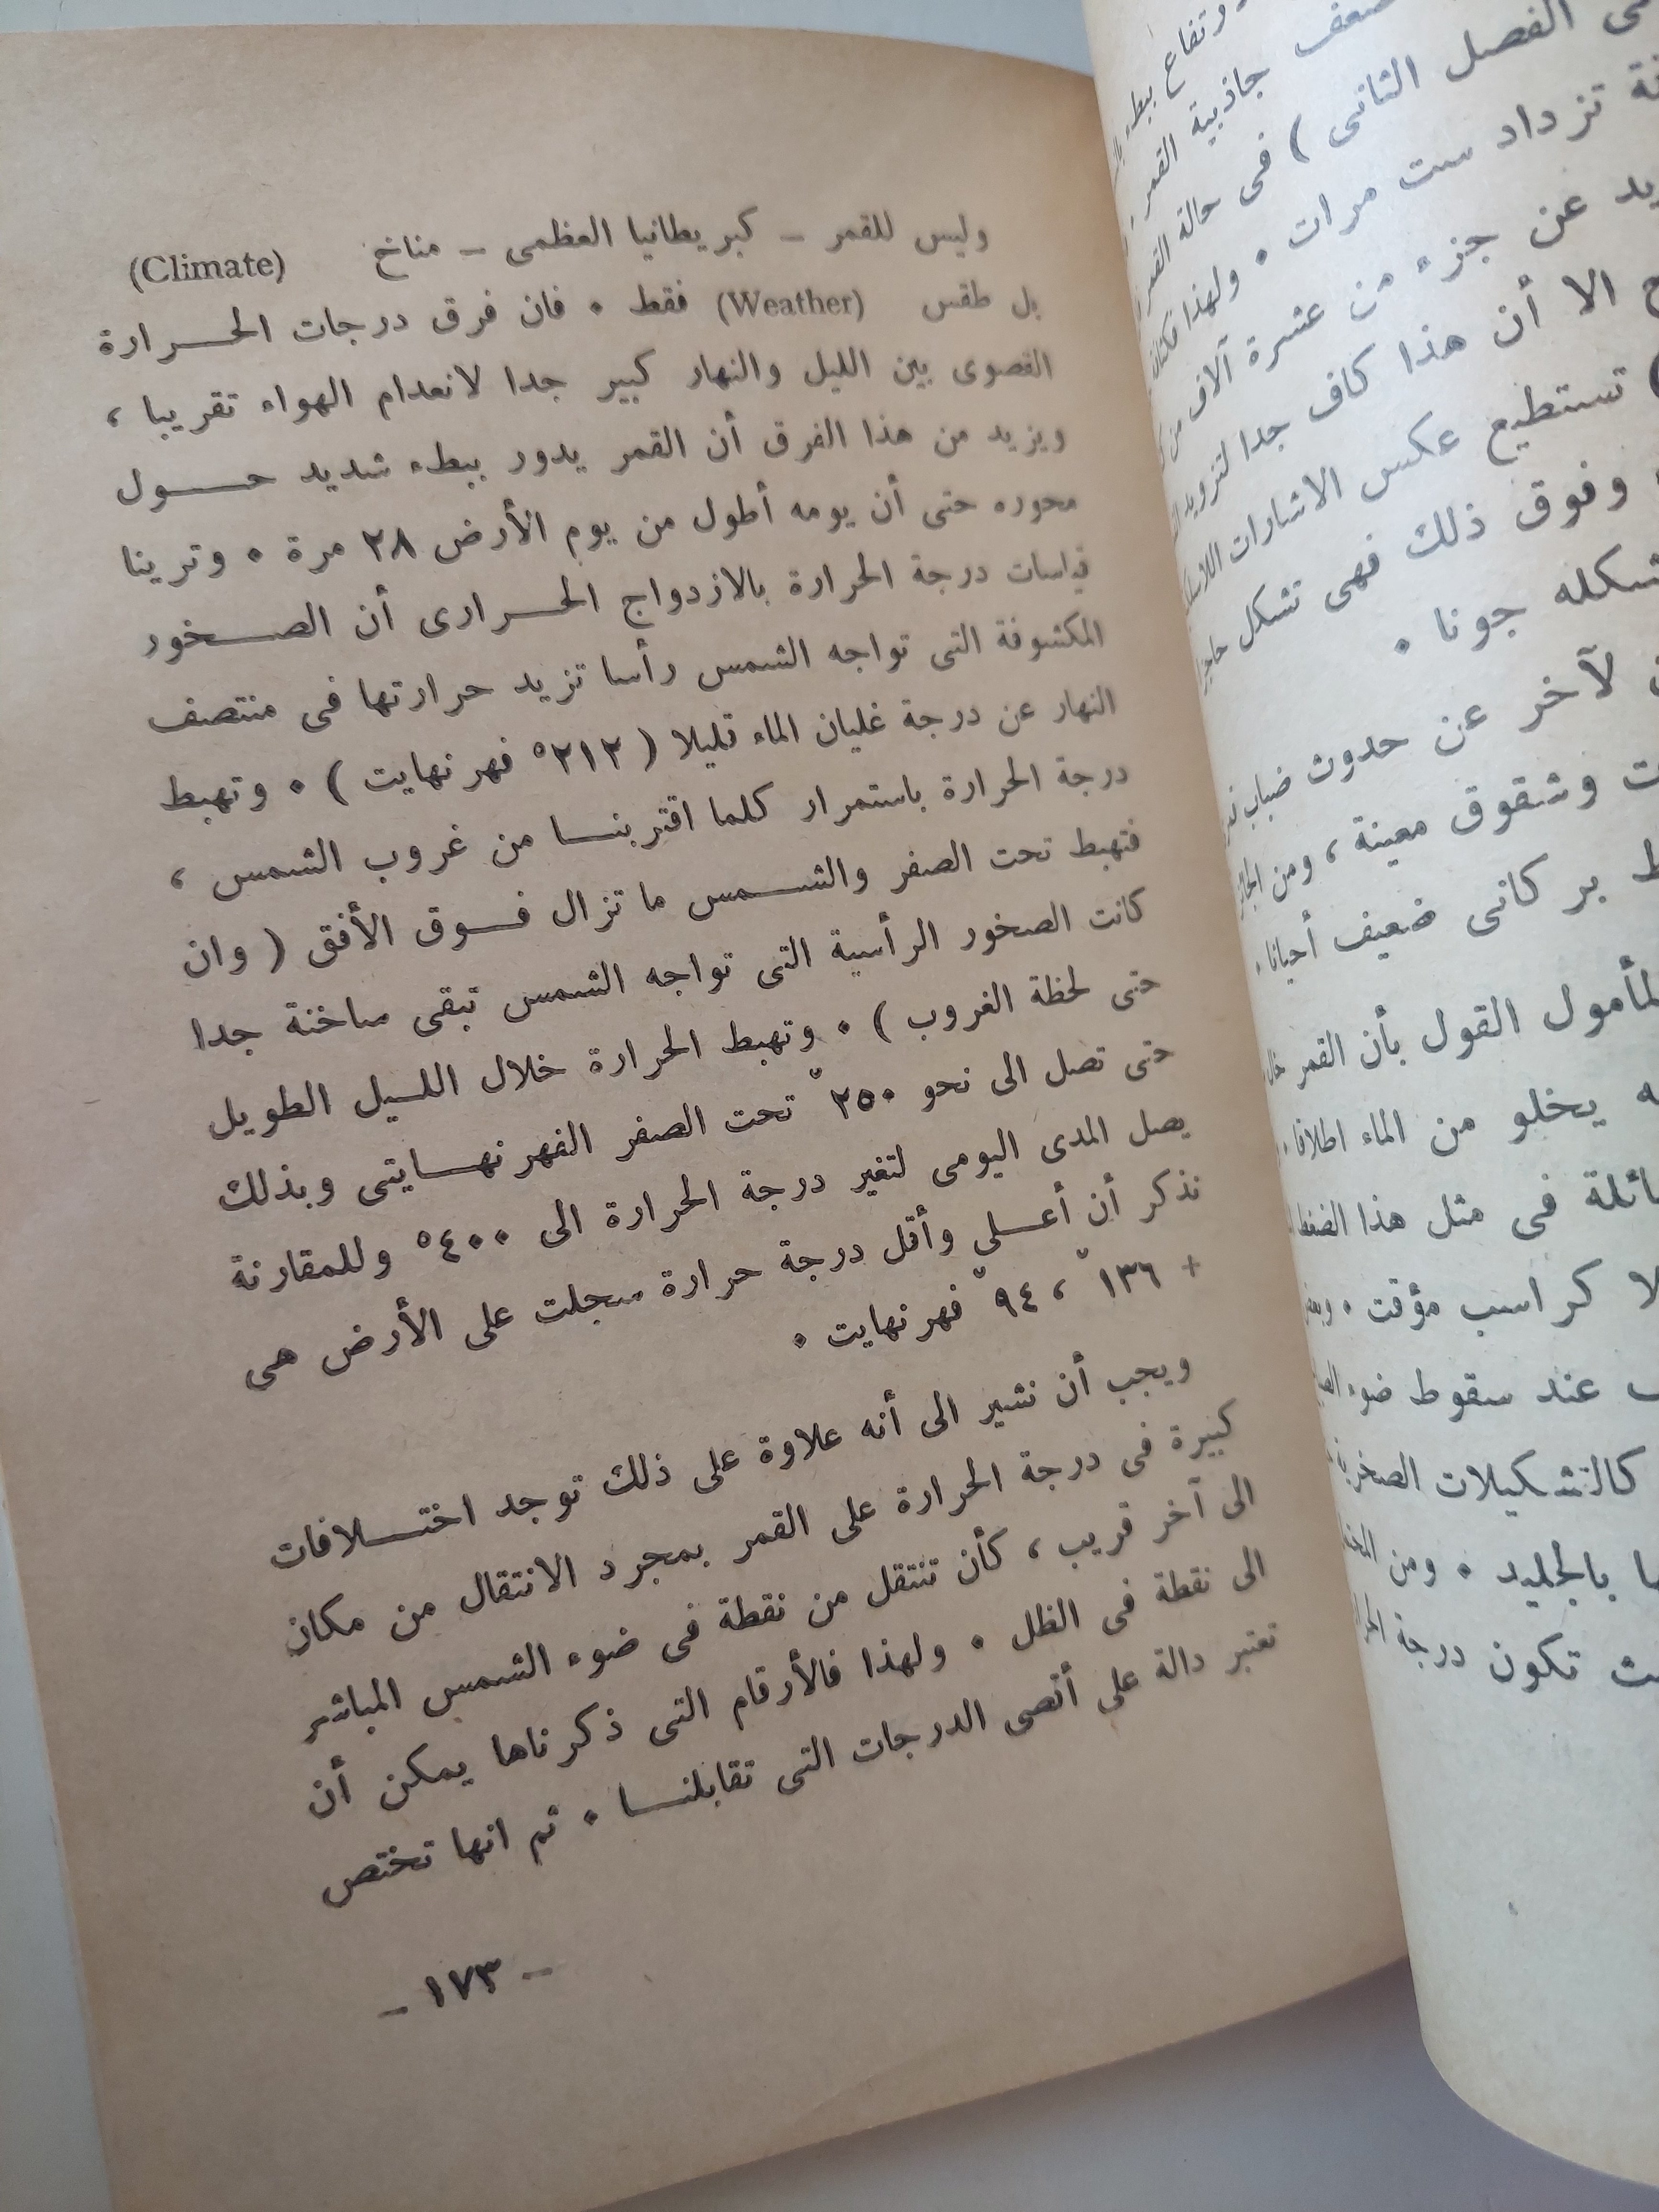 وليس للقمر – كبريطانيا العظمى – مناخ (Climate)
بل طقس (Weather) فقط • فان فرق درجات الحرارة
القصوى بين الليل والنهار كبير جدا لانعدام الهواء تقريبا ،
ويزيد من هذا الفرق أن القمر يدور ببطء شديد حول
محوره حتى أن يومه أطول من يوم الأرض ٢٨ مرة • وترينا
قياسات درجة الحرارة بالازدواج الحرارى أن الصخور
المكشوفة التى تواجه الشمس رأسا تزيد حرارتها فى منتصف
النهار عن درجة غليان الماء قليلا ( ٢١٢° فهرنهايت ) • وتهبط
درجة الحرارة باستمرار كلما اقتربنا من غروب الشمس ،
فتهبط تحت الصفر والشمس ما تزال فوق الأفق ( وان
كانت الصخور الرأسية التى تواجه الشمس تبقى ساخنة جدا
حتى لحظة الغروب ) • وتهبط الحرارة خلال الليل الطويل
حتى تصل الى نحو ٢٥٠° تحت الصفر الفهرنهايتى وبذلك
يصل المدى اليومى لتغير درجة الحرارة الى ٤٠٠° وللمقارنة
نذكر أن أعلى وأقل درجة حرارة سجلت على الأرض هى
+ ١٣٦° ، ٩٤° فهرنهايت •
ويجب أن نشير الى أنه علاوة على ذلك توجد اختلافات
كبيرة فى درجة الحرارة على القمر بمجرد الانتقال من مكان
الى آخر قريب ، كأن تنتقل من نقطة فى ضوء الشمس المباشر
الى نقطة فى الظل • ولهذا فالأرقام التى ذكرناها يمكن أن
تعتبر دالة على أقصى الدرجات التى تقابلنا • ثم انها تختص
– ١٧٣ –
ضعف جاذبية القمر
فى الفصل الثانى ) فى حالة القمر
تزداد ست مرات • ولهذا
عن جزء من عشرة آلاف من
الا أن هذا كاف جدا لتزويد
تستطيع عكس الاشارات
وفوق ذلك فهى تشكل
جونا •
لآخر عن حدوث ضباب
وشقوق معينة ، ومن
بركانى ضعيف أحيانا •
القول بأن القمر
يخلو من الماء اطلاقا •
فى مثل هذا الضغط
كراسب مؤقت •
عند سقوط ضوء
كالتشكيلات الصخرية
بالجليد • ومن
تكون درجة